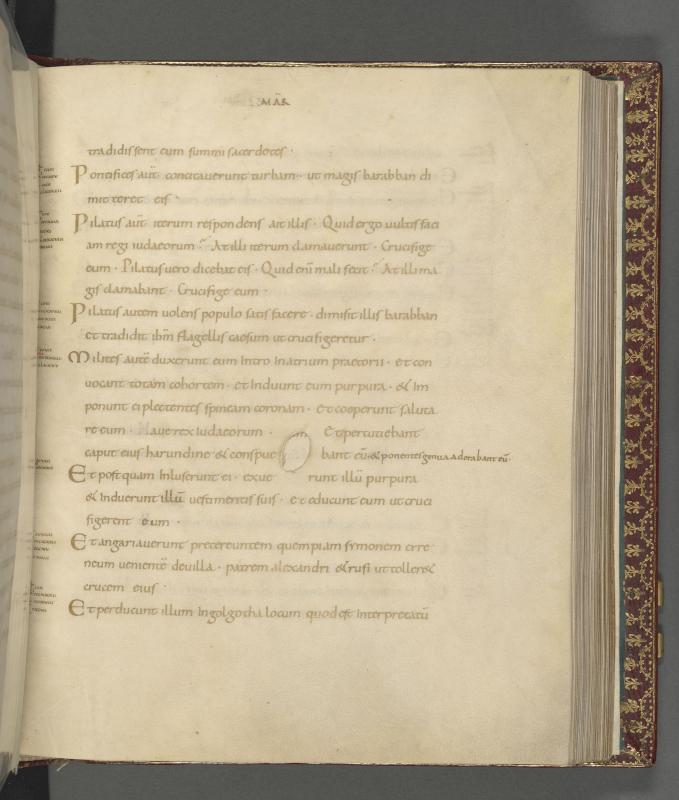 MAR
tradidissent eum summi sacerdotes ·
Pontifices aūt concitaverunt turbam · ut magis barabban di
mitteret eis ·
Pilatus aūt iterum respondens ait illis · Quid ergo vultis faci
am regi iudaeorum · At illi iterum clamaverunt · Crucifige
eum · Pilatus vero dicebat eis · Quid enī mali fecit · At illi ma
gis clamabant · Crucifige eum ·
Pilatus autem volens populo satisfacere · dimisit illis barabban
et tradidit ihm̄ flagellis caesum ut crucifigeretur ·
Milites autē duxerunt eum Intro In atrium praetorii · et con
vocant totam cohortem · et Induunt eum purpura · & Im
ponunt ei plectentes spineam coronam · Et coeperunt saluta
re eum · Have rex Iudaeorum · Et percutiebant
caput eius harundine & conspue bant eū · & ponentes genua adorabant eū ·
Et postquam Inluserunt ei · exue runt illū purpura
& Induerunt illū vestimentis suis · et educunt eum ut cruci
figerent eum ·
Et angariaverunt pretereuntem quempiam symonem cyre
neum venientē de villa · patrem alexandri & rufi ut toller&
crucem eius ·
Et perducunt illum In golgotha locum quod est Interpretatū